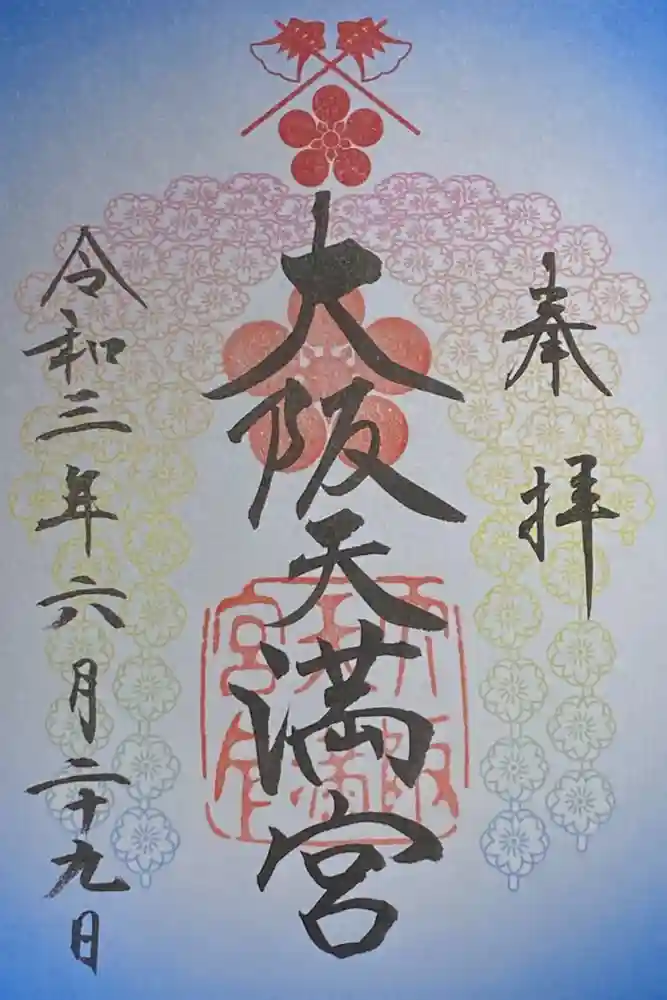 奉拝
大阪天満宮
令和三年六月二十九日